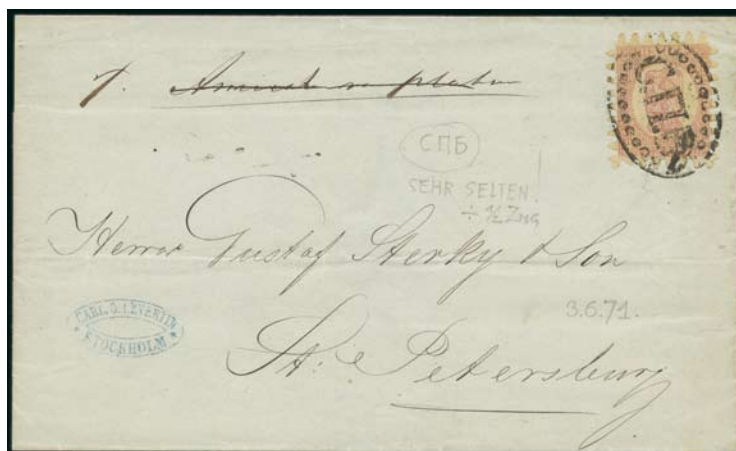 СПБ
СПБ
SEHR SELTEN!
÷ ½ Zng
Herrar Gustaf Sterky & Son
3.6.71.
CARL. G. LEVERTIN
STOCKHOLM
St: Petersburg